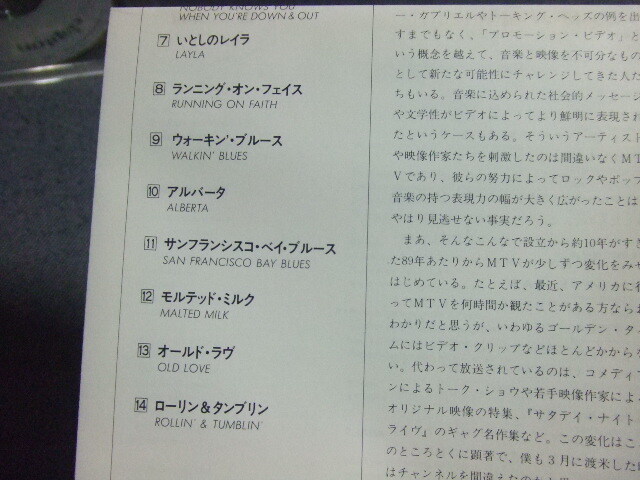 NOBODY KNOWS YOU
WHEN YOU'RE DOWN & OUT
7 いとしのレイラ
LAYLA
8 ランニング・オン・フェイス
RUNNING ON FAITH
9 ウォーキン・ブルース
WALKIN' BLUES
10 アルバータ
ALBERTA
11 サンフランシスコ・ベイ・ブルース
SAN FRANCISCO BAY BLUES
12 モルテッド・ミルク
MALTED MILK
13 オールド・ラヴ
OLD LOVE
14 ローリン&タンブリン
ROLLIN' & TUMBLIN'
ー・ガブリエルやトーキング・ヘッズの例を出
すまでもなく、「プロモーション・ビデオ」と
いう概念を越えて、音楽と映像を不可分なもの
として新たな可能性にチャレンジしてきた人た
ちもいる。音楽に込められた社会的メッセージ
や文学性がビデオによってより鮮明に表現され
たというケースもある。そういうアーティスト
や映像作家たちを刺激したのは間違いなくMT
Vであり、彼らの努力によってロックやポップ
音楽の持つ表現力の幅が大きく広がったことは
やはり見逃せない事実だろう。
まあ、そんなこんなで設立から約10年がすぎ
た89年あたりからMTVが少しずつ変化をみせ
はじめている。たとえば、最近、アメリカに行
ってMTVを何時間か観たことがある方ならお
わかりだと思うが、いわゆるゴールデン・タイ
ムにはビデオ・クリップなどほとんどかからな
い。代わって放送されているのは、コメディア
ンによるトーク・ショウや若手映像作家による
オリジナル映像の特集、『サタデイ・ナイト・
ライヴ』のギャグ名作集など。この変化はこ
のところとくに顕著で、僕も3月に渡米した
はチャンネルを間違えたのかと